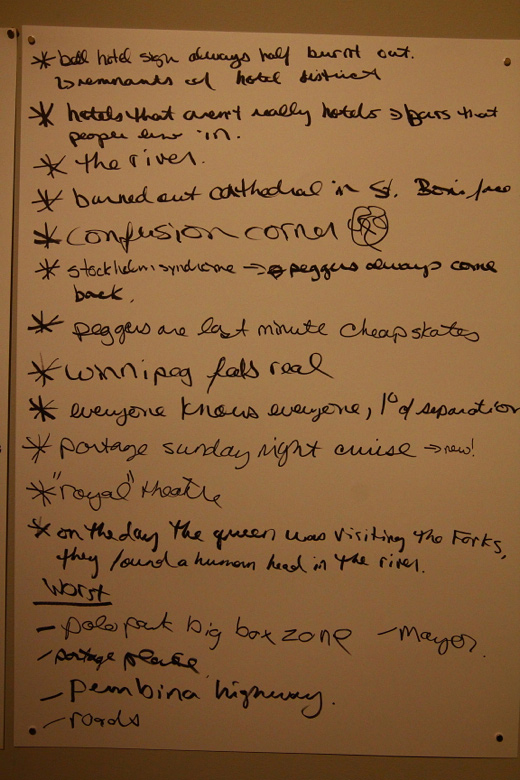 * bell hotel sign always half burnt out.
↳ remnants of hotel district
* hotels that aren't really hotels → bars that
people live in.
* the river.
* burned out cathedral in St. Boniface
* confusion corner
* stockholm syndrome → peggers always come
back.
* peggers are last minute cheapskates
* winnipeg feels real
* everyone knows everyone, 1° of separation
* portage sunday night cruise → new!
* "royal" theatre
* on the day the queen was visiting the Forks,
they found a human head in the river.
Worst
- polo park big box zone - Mayor.
- portage place
- pembina highway.
- roads